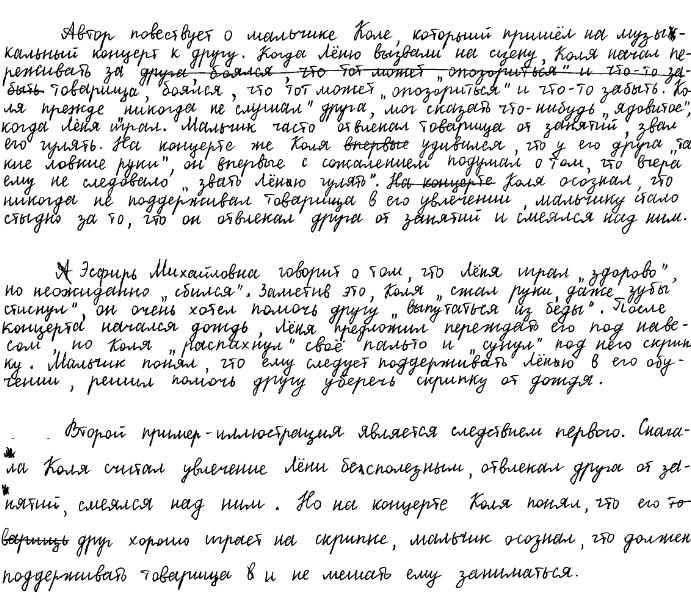 Автор повествует о мальчике Коле, который пришёл на музы-
кальный концерт к другу. Когда Лёню вызвали на сцену, Коля начал пе-
реживать за друга боялся, что тот может „опозориться" и что-то за-
быть товарища, боялся, что тот может „опозориться" и что-то забыть. Ко-
ля прежде „никогда не слушал" друга, мог сказать что-нибудь „ядовитое",
когда Лёня играл. Мальчик часто отвлекал товарища от занятий, звал
его гулять. На концерте же Коля впервые удивился, что у его друга „та
кие ловкие руки", он впервые с сожалением подумал о том, что вчера
ему не следовало „звать Лёню гулять". На концерте Коля осознал, что
никогда не поддерживал товарища в его увлечении, мальчику стало
стыдно за то, что он отвлекал друга от занятий и смеялся над ним.
А Эсфирь Михайловна говорит о том, что Лёня играл „здорово",
но неожиданно „сбился". Заметив это, Коля „сжал руки, даже зубы
стиснул", он очень хотел помочь другу „выпутаться из беды". После
концерта начался дождь, Лёня предложил переждать его под наве-
сом, но Коля „распахнул" своё пальто и „сунул" под него скрип
ку. Мальчик понял, что ему следует поддерживать Лёню в его обу-
чении, решил помочь другу уберечь скрипку от дождя.
Второй пример-иллюстрация является следствием первого. Снача-
ла Коля считал увлечение Лёни бесполезным, отвлекал друга от за-
нятий, смеялся над ним. Но на концерте Коля понял, что его то
варищь друг хорошо играет на скрипке, мальчик осознал, что должен
поддерживать товарища в и не мешать ему заниматься.